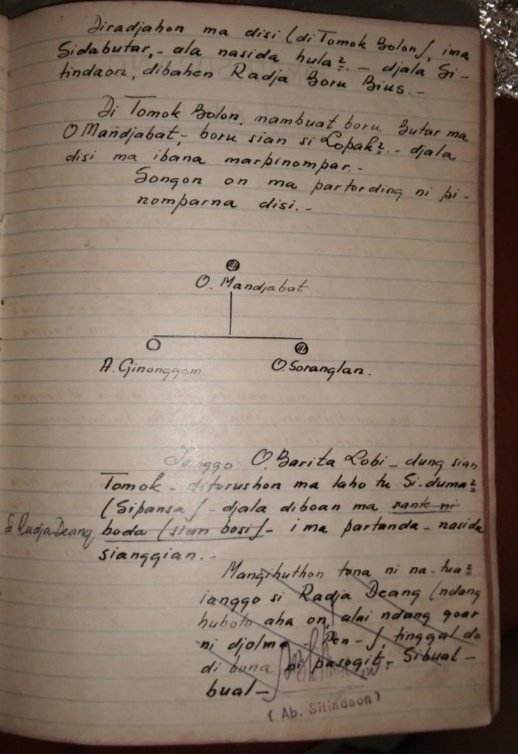 Diradjahon ma disi (di Tomok Bolon), ima
Sidabutar,- ala nasida hula². - djala Si-
tindaon, dibahen Radja Boru Bius. -
Di Tomok Bolon, nambuat boru Butar ma
O Mandjabat,- boru sian si Lopak². - djala
disi ma ibana marpinompar. -
Songon on ma partording ni pi-
nomparna disi. -
O. Mandjabat
A. Ginonggom
O. Soranglan.
Janggo O. Barita Lobi - dung sian
Tomok - ditorushon ma laho tu Si.duma²
(Sipansa) - djala diboan ma sank ni
Si Radja Deang
hoda (sian bosi) - ima partanda - nasida
sianggian. -
Mangihuthon tona ni na-tua²
ianggo si Radja Deang (ndang
huboto aha on, alai ndang goar
ni djolma -) tinggal do
di bona ni pasogit - Sibual-
bual -
( Ab. Sitindaon )